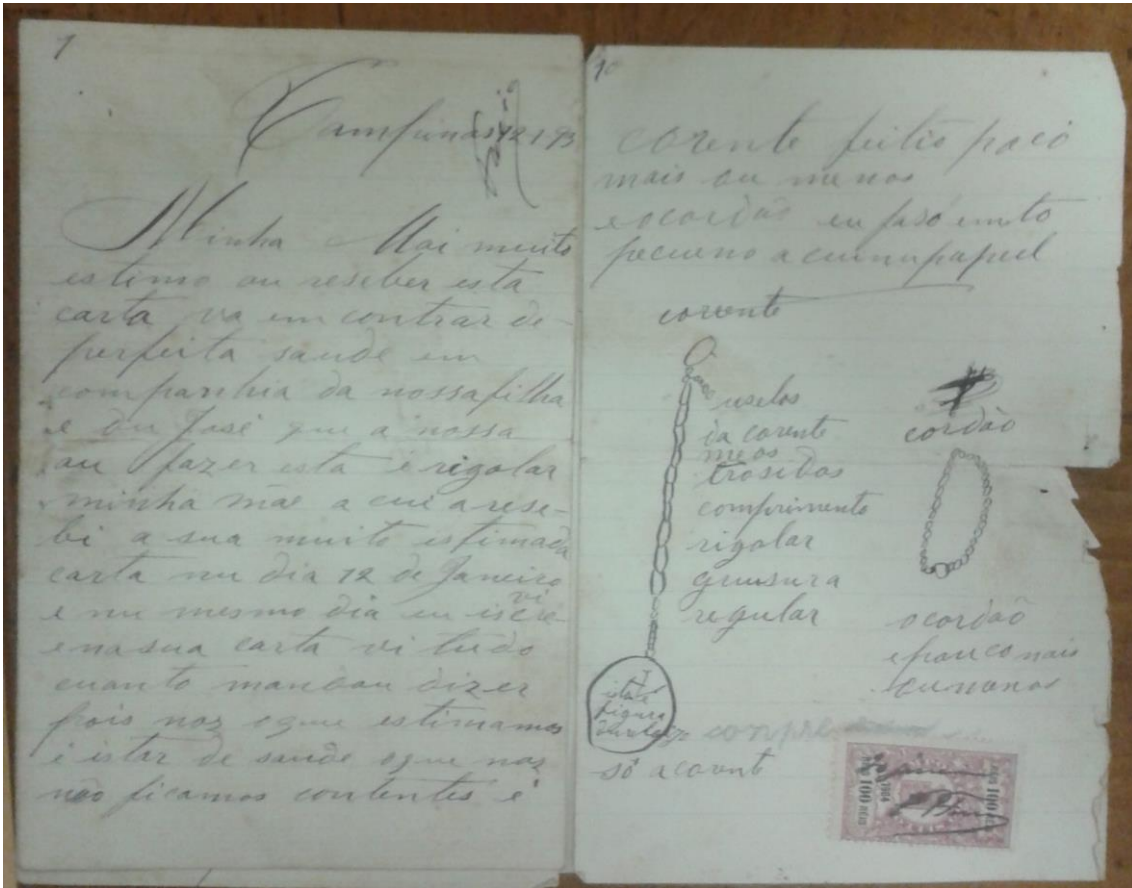 1
Campinas 12-1-93
Minha Mai muito
estimo au reseber esta
carta va em contrar de
perfeita saude em
companhia da nossa filha
e du José que a nossa
au fazer esta é rigolar
minha mãe a cui a rese-
bi a sua muito estimada
carta nu dia 12 de Janeiro
e nu mesmo dia eu iscrevi
e na sua carta vi tudo
cuanto mandou dizer
pois noz o que estimamos
é istar de saude o que noz
não ficamos contentes é
10
corente feitio
mais ou menos
e o cordão eu faso
pecueno a cui nu papel
corente
uselos
da corente
meos
trosidos
comprimento
rigolar
grusura
regular
cordão
o cordão
e pouco mais
ou menos
I
istaé
figura
du relogio
só a corente
100 REIS
1904
100 REIS